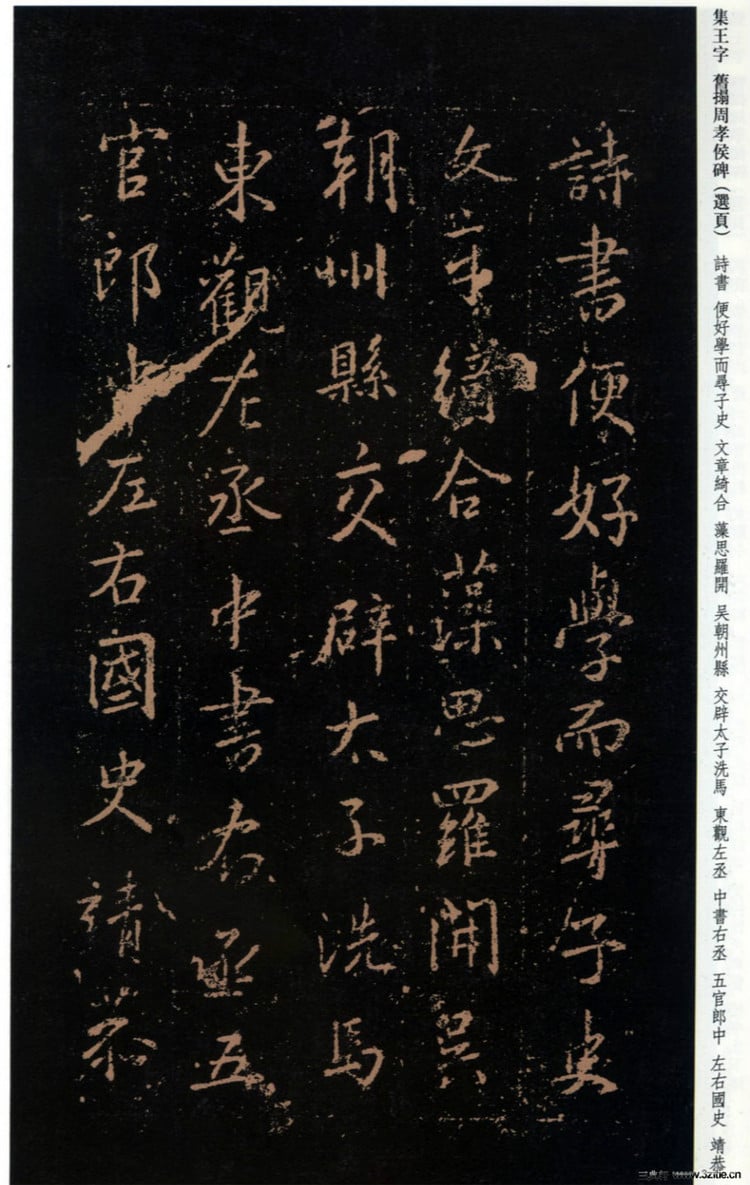 集王字 舊搨周孝侯碑（選頁） 詩書 便好學而尋子史 文章綺合 藻思羅開 吴朝州縣 交辟太子洗馬 東觀左丞 中書右丞 五官郎中 左右國史 靖恭
詩書便好學而尋子史
文章綺合藻思羅開吴
朝州縣交辟太子洗馬
東觀左丞中書右丞五
官郎中左右國史靖恭
www.3zitie.cn